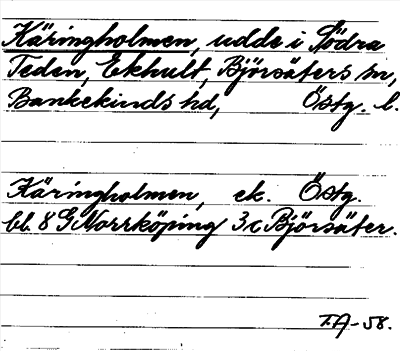 Käringholmen, udde i Södra
Teden, Ekhult, Björsäters sn,
Bankekinds hd, Östg. l.
Käringholmen, ek. Östg.
bl. 8 G Norrköping 3c Björsäter.
T.A-58.